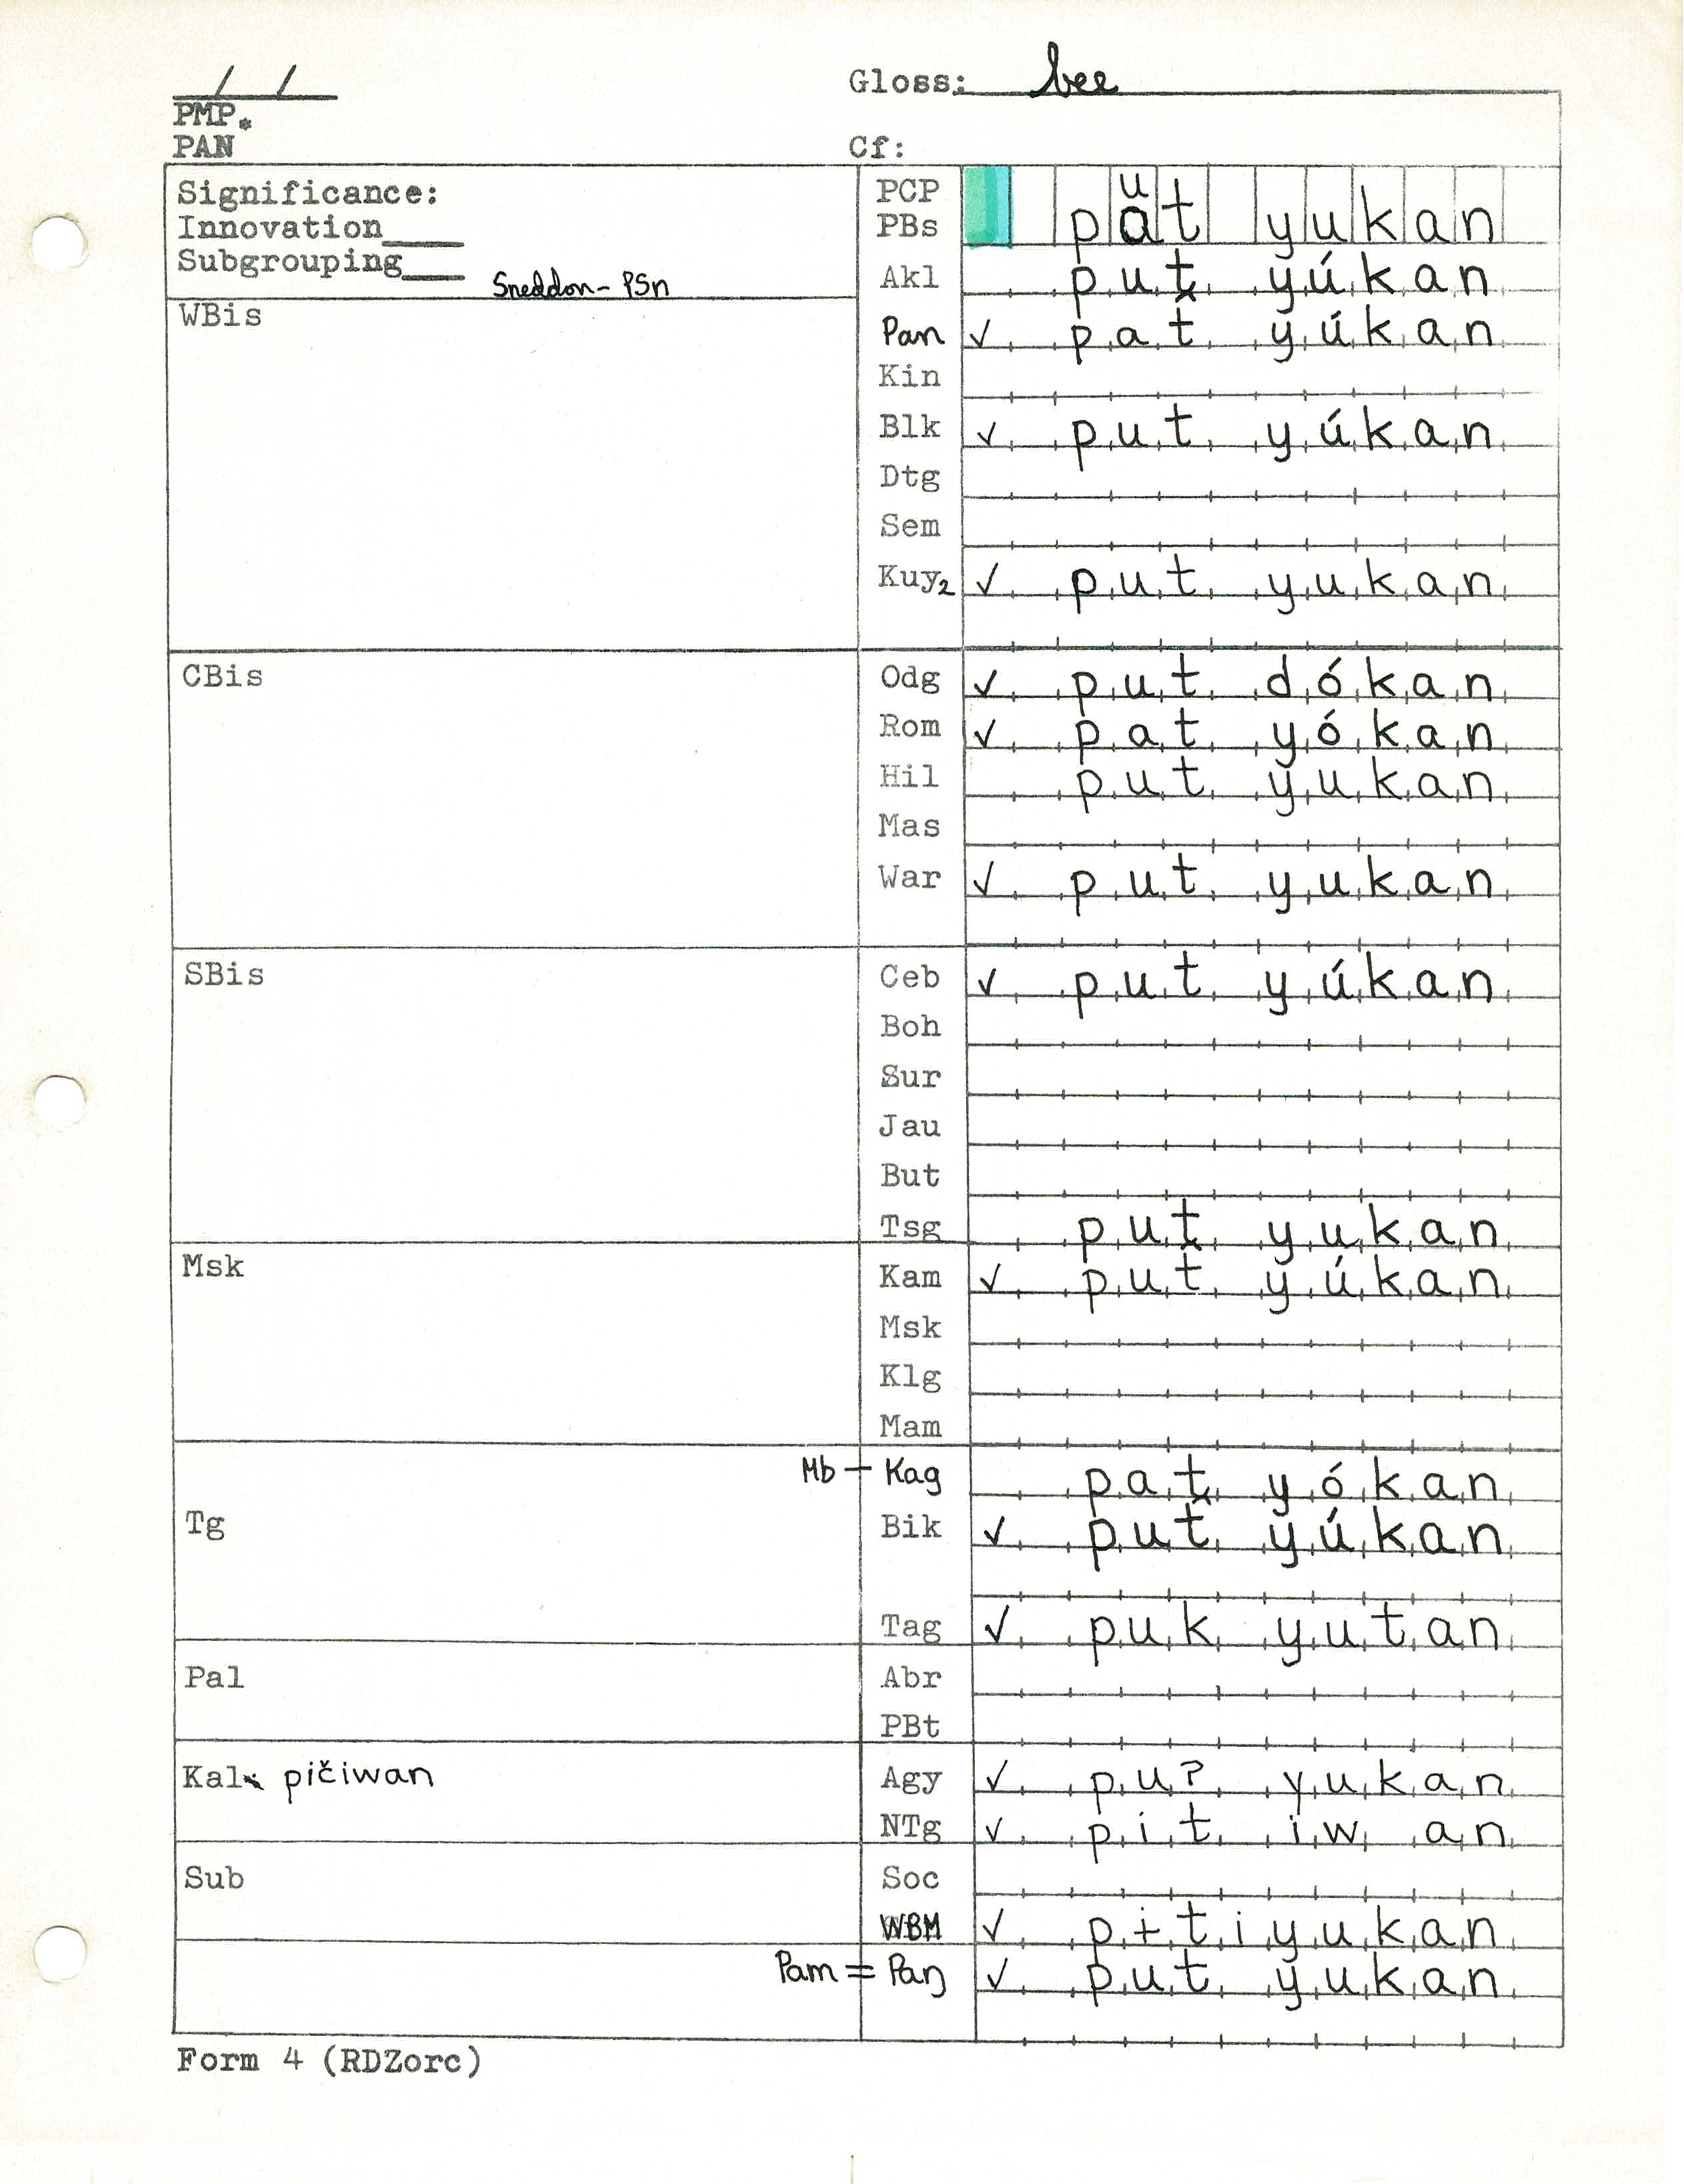 / / Gloss: bee
PMP*
PAN Cf:
Significance: PCP u
Innovation____ PBs pat yukan
Subgrouping____ Akl put yúkan
Sneddon - PSn
WBis Pan ✓ pat yúkan
Kin
Blk ✓ put yúkan
Dtg
Sem
Kuy2 ✓ put yukan
CBis Odg ✓ put dókan
Rom ✓ pat yókan
Hil put yukan
Mas
War ✓ put yukan
SBis Ceb ✓ put yúkan
Boh
Sur
Jau
But
Tsg put yukan
Msk Kam ✓ put yúkan
Msk
Klg
Mam
Mb - Kag pat yókan
Tg Bik ✓ put yúkan
Tag ✓ puk yutan
Pal Abr
PBt
Kal pičiwan Agy ✓ pu? yukan
NTg ✓ pit iw an
Sub Soc
WBM ✓ pɨtiyukan
Pam = Paŋ ✓ put yukan
Form 4 (RDZorc)